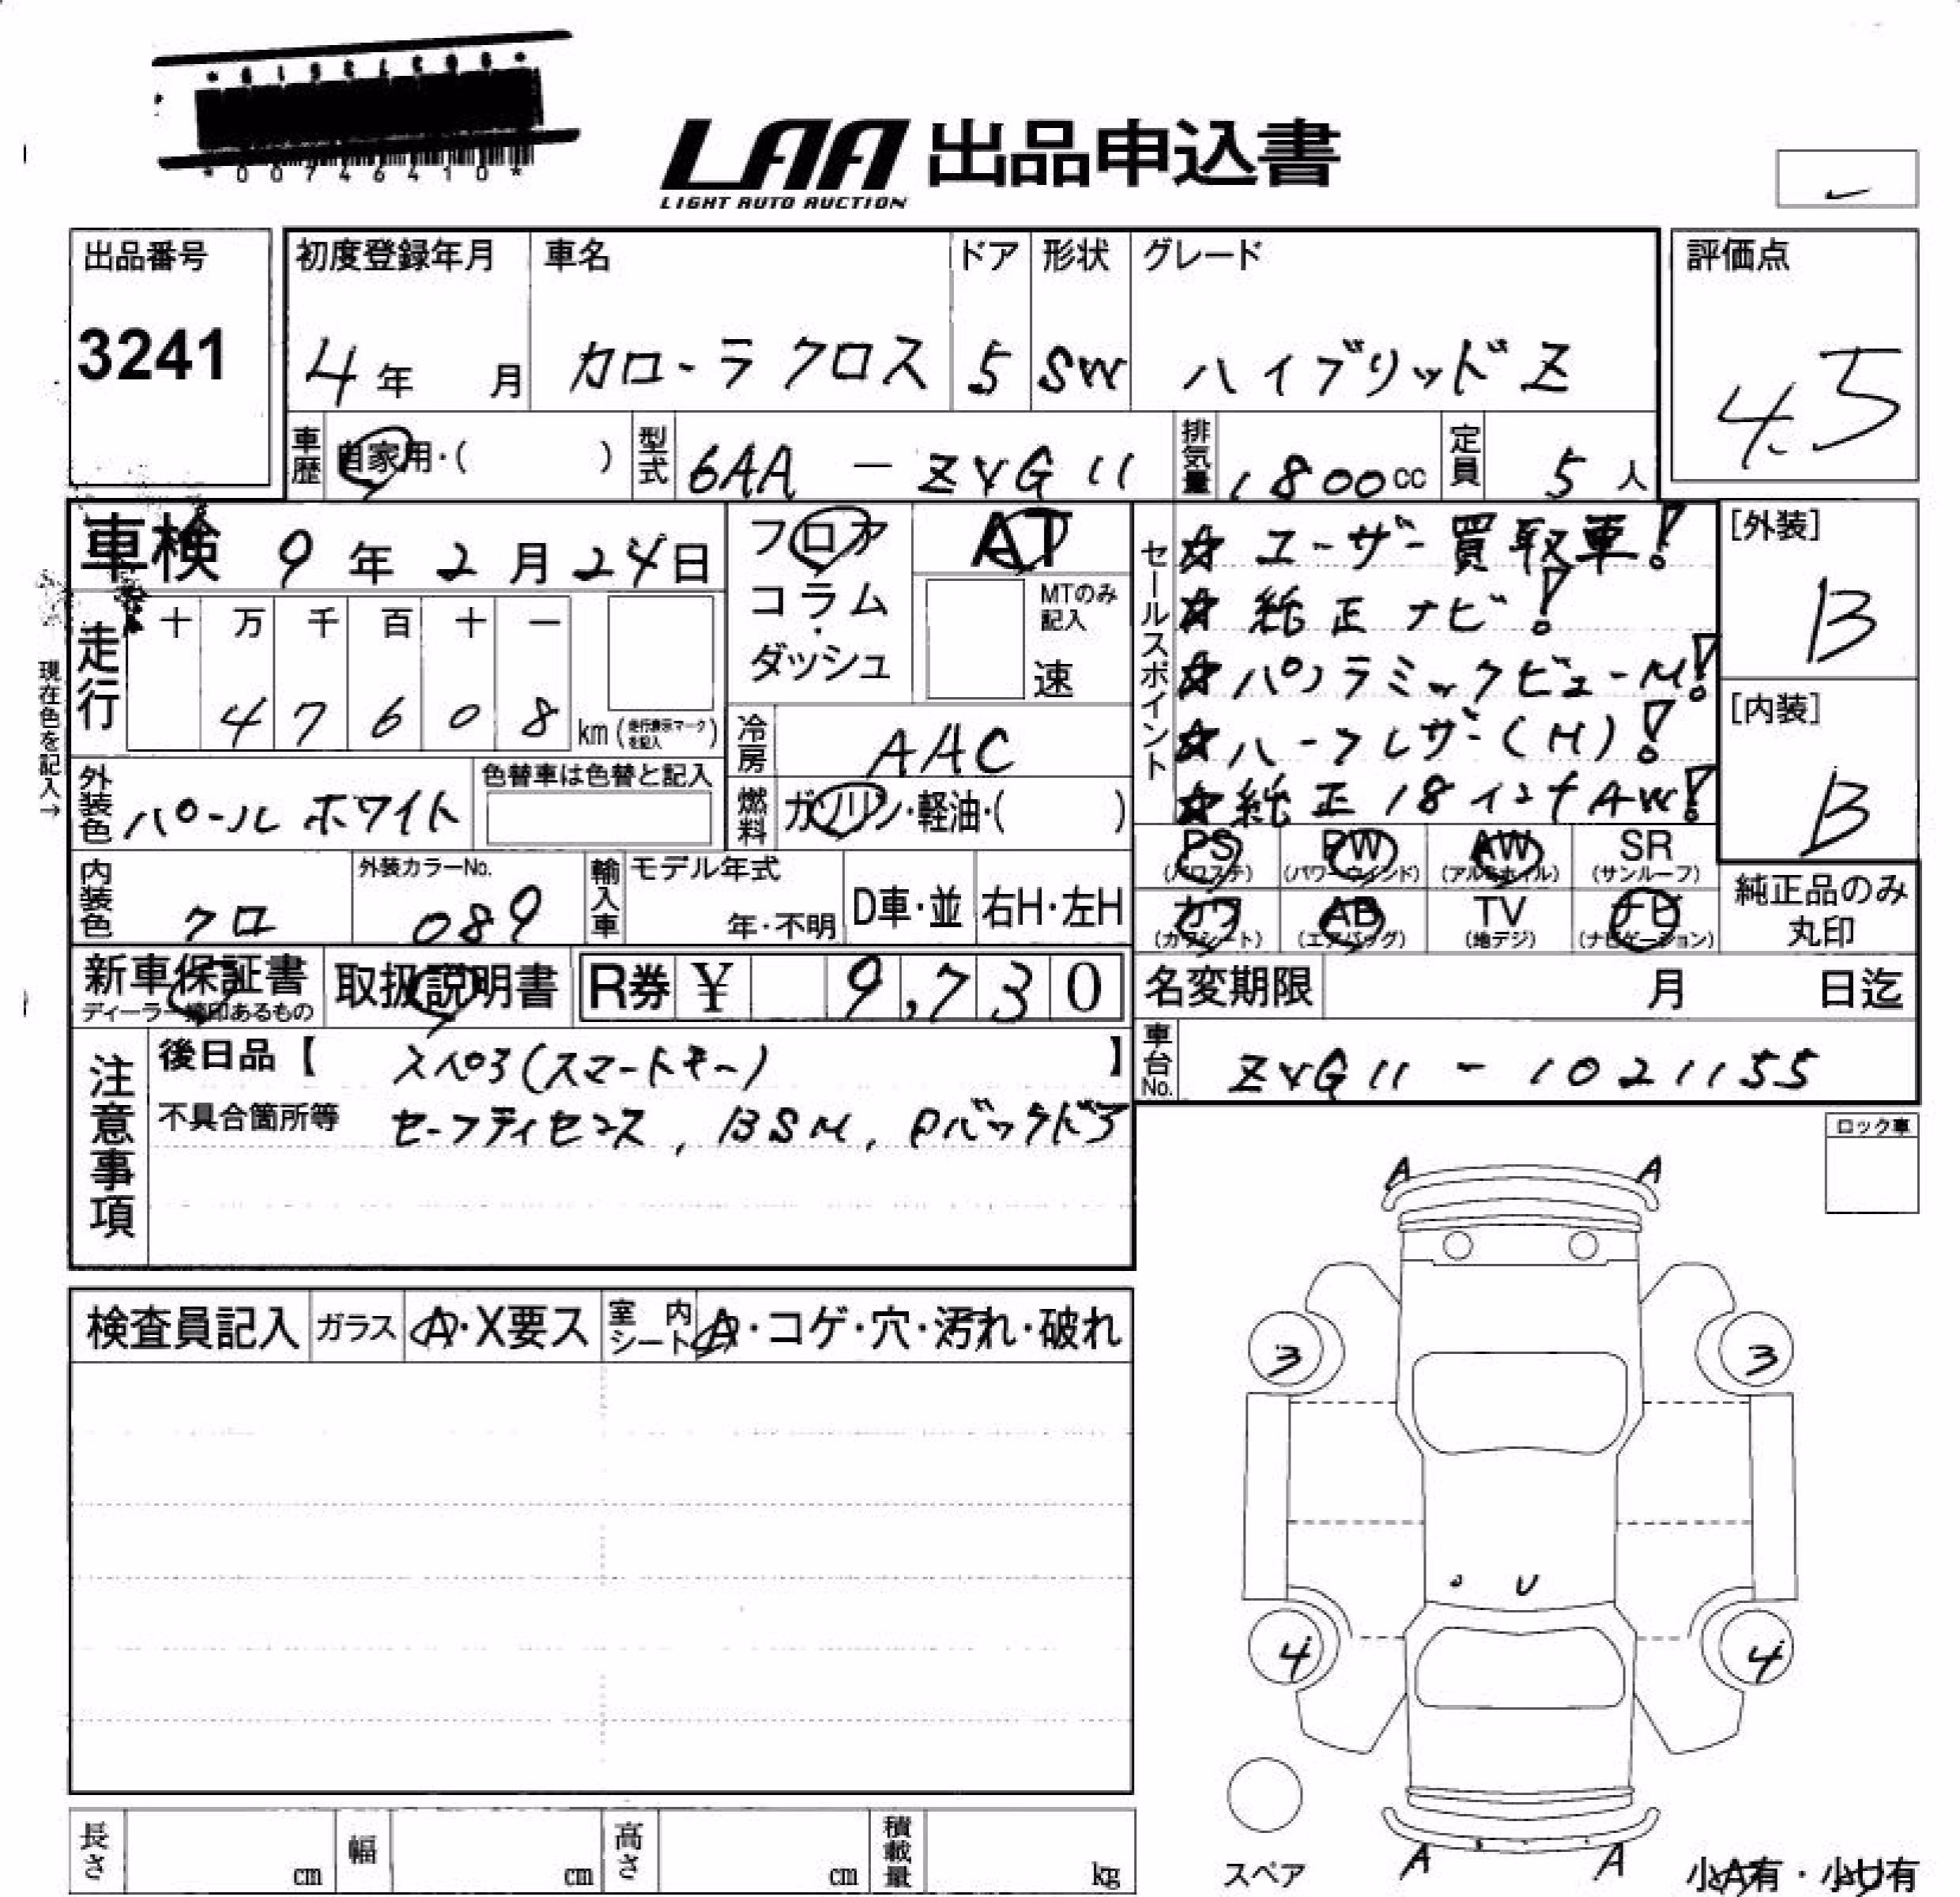 *00746410*
LAA 出品申込書
LIGHT AUTO AUCTION
出品番号
3241
初度登録年月
4年 月
車名
カローラクロス
ドア
5
形状
SW
グレード
ハイブリッドZ
評価点
4.5
車歴
自家用・( )
型式
6AA - ZVG11
排気量
1800cc
定員
5人
車検 9年2月24日
フロア
コラム
・
ダッシュ
AT
MTのみ
記入
速
セールスポイント
☆ユーザー買取車!
☆純正ナビ!
☆パノラミックビューM!
☆ハーフレザー(H)!
☆純正18インチAW!
[外装]
B
[内装]
B
現在色を記入→
走行
十 万 千 百 十 一
4 7 6 0 8 km(走行表示マークを記入)
冷房
AAC
外装色
パールホワイト
色替車は色替と記入
燃料
ガソリン・軽油・( )
PS
(パワステ)
PW
(パワーウインド)
AW
(アルミホイル)
SR
(サンルーフ)
カワ
(カワシート)
AB
(エアバッグ)
TV
(地デジ)
ナビ
(ナビゲーション)
純正品のみ
丸印
内装色
クロ
外装カラーNo.
089
輸入車
モデル年式
年・不明
D車・並
右H・左H
新車保証書
ディーラー捺印あるもの
取扱説明書
R券 ¥ 9,730
名変期限 月 日迄
車台No.
ZVG11 - 1021155
注意事項
後日品【 スペ03(スマートキー) 】
不具合箇所等 セーフティセンス, BSM, Pバックドア
ロック車
A A
検査員記入
ガラス
A・X要ス
室内シート
A・コゲ・穴・汚れ・破れ
3 3
U
4 4
長さ cm
幅 cm
高さ cm
積載量 kg
スペア
A A
小A有・小U有